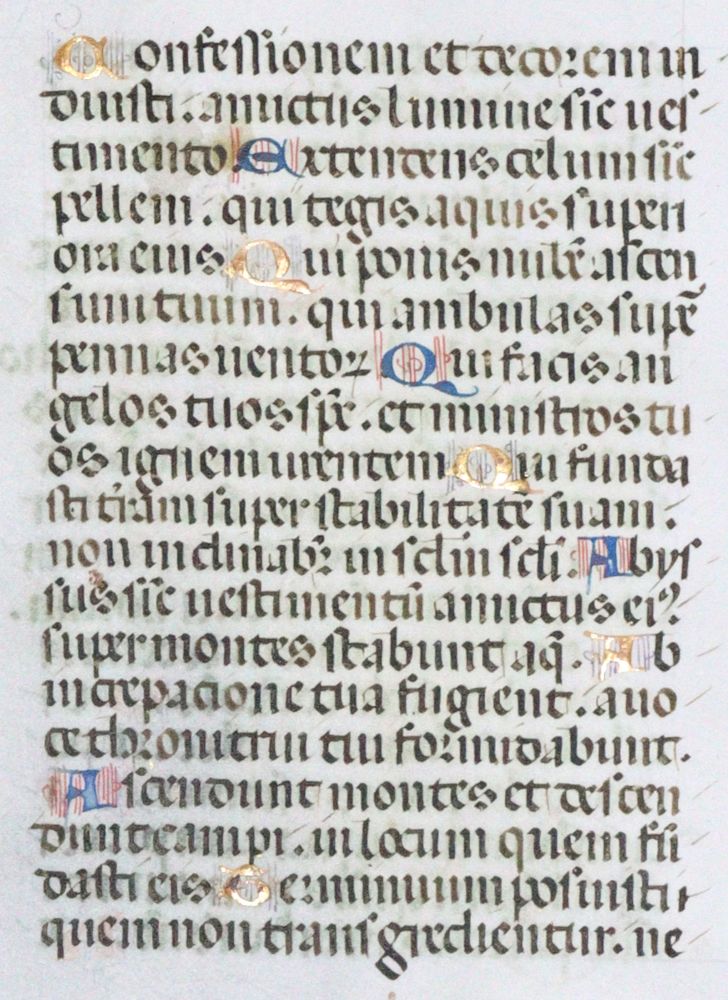 Confessionem et decorem in
duisti . amictus lumine sic̄ ues
timento Extendens celum sic̄
pellem . qui tegis aquis superi
ora eius Qui ponis nubē ascen
sum tuum . qui ambulas supē
pennas uentoꝝ Qui facis an
gelos tuos sp̄c . et ministros tu
os ignem urentem Qui funda
sti t̄ram super stabilitatē suam .
non inclinabꝛ in sclm̄ scli̅ . Abys
sus sic̄ uestimentū amictus eiꝰ
super montes stabunt aq̄ . Ab
increpacione tua fugient . a uo
ce thronitrui tui formidabunt .
Ascendunt montes et descen
dunt campi . in locum quem fū
dasti eis Terminum posuisti
quem non transgredientur . ne